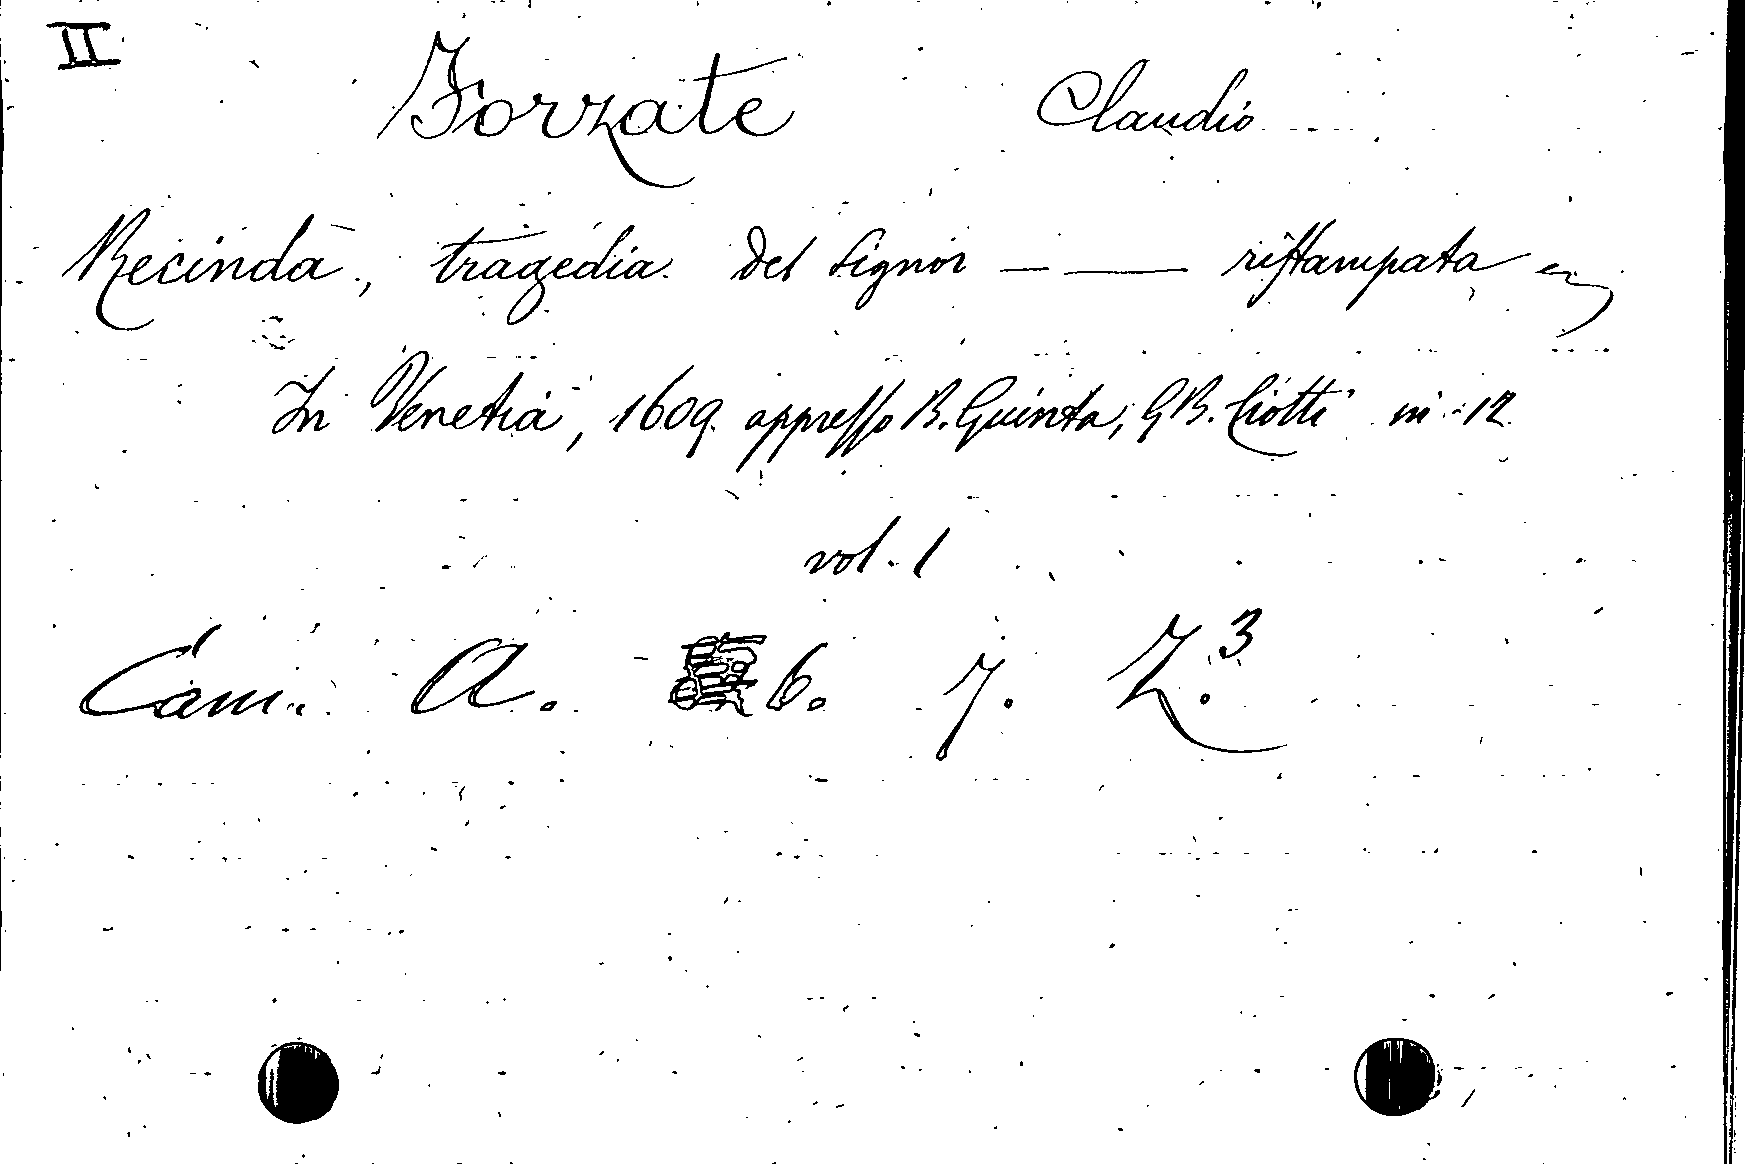 II
Forzate Claudio
Recinda, tragedia del Signor — — ristampata
In Venetia, 1609. appresso B. Guinta, GB. Ciotti in-12
vol. 1
Cam. A. 6. 7. Z.3